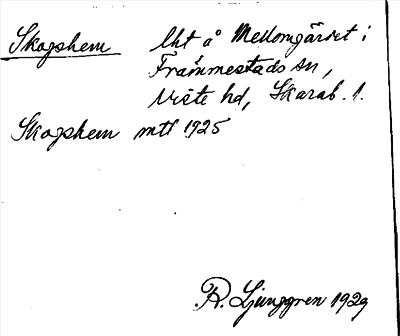 Skogshem lht å Mellomgärdet i
Främmestads sn,
Viste hd, Skarab. l.
Skogshem mtl 1925
R. Ljunggren 1929